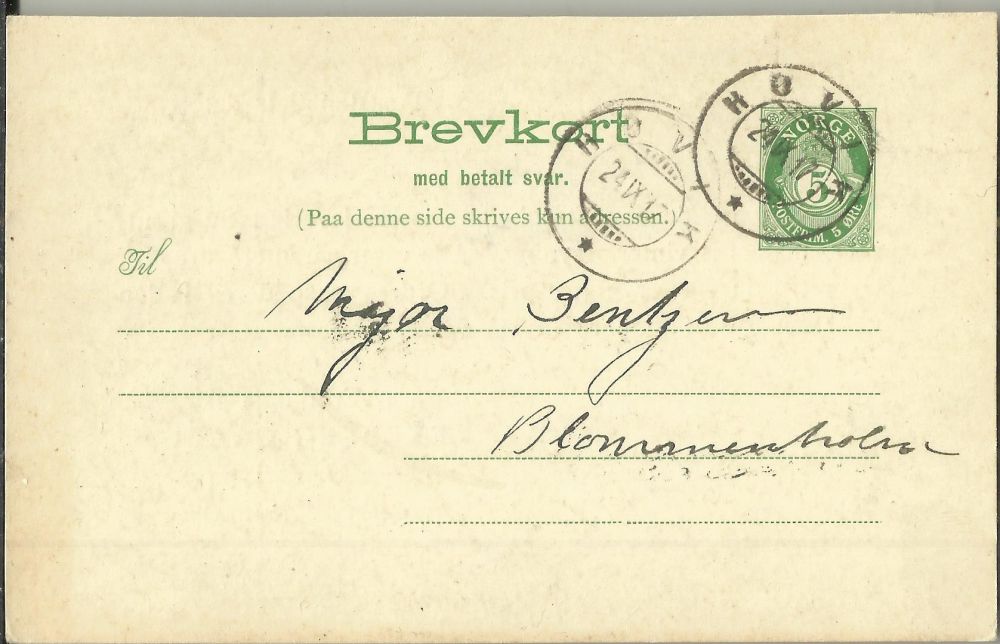 Brevkort
med betalt svar.
(Paa denne side skrives kun adressen.)
HØVIK
24 IX 17
HØVIK
NORGE
5
POSTFRIM. 5 ØRE
Til
Major Bentzen
Blommenholm